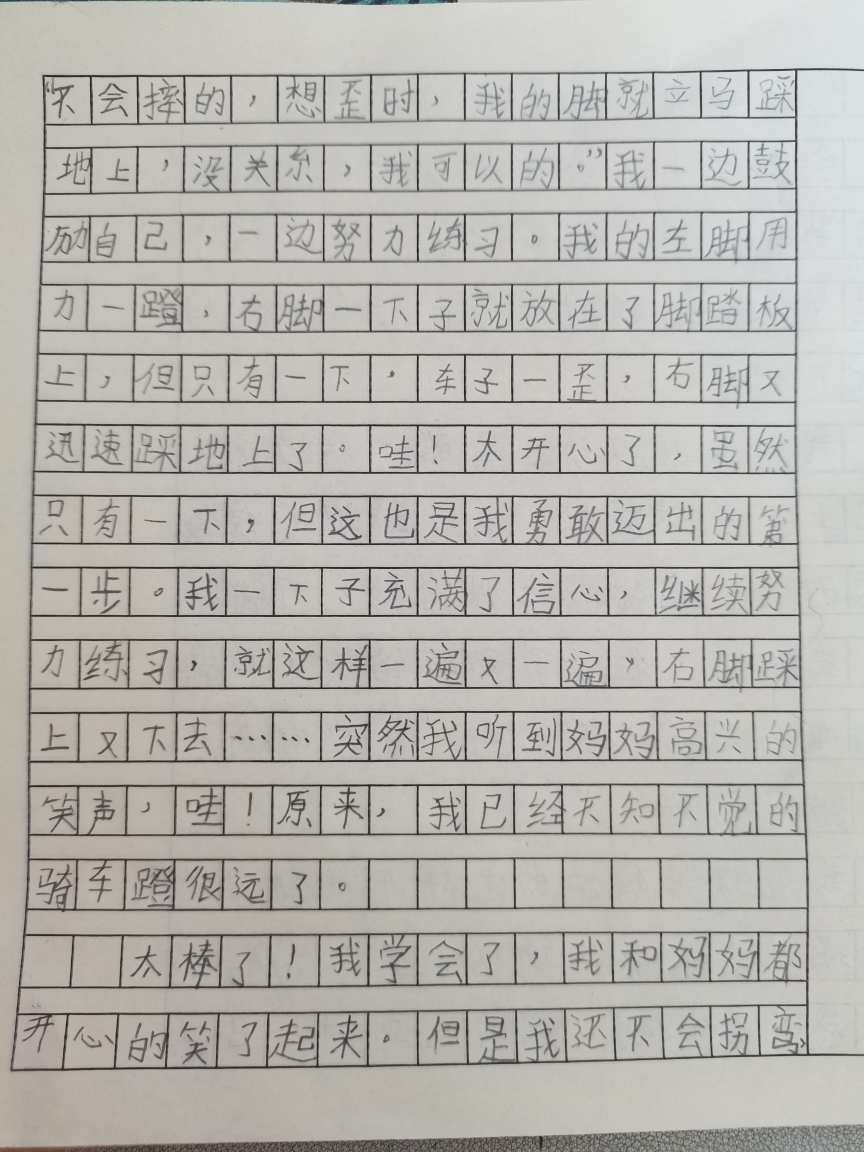 “不会摔的，想歪时，我的脚就立马踩
地上，没关系，我可以的。”我一边鼓
励自己，一边努力练习。我的左脚用
力一蹬，右脚一下子就放在了脚踏板
上，但只有一下，车子一歪，右脚又
迅速踩地上了。哇！太开心了，虽然
只有一下，但这也是我勇敢迈出的第
一步。我一下子充满了信心，继续努
力练习，就这样一遍又一遍，右脚踩
上又下去……突然我听到妈妈高兴的
笑声，哇！原来，我已经不知不觉的
骑车蹬很远了。
太棒了！我学会了，我和妈妈都
开心的笑了起来。但是我还不会拐弯，